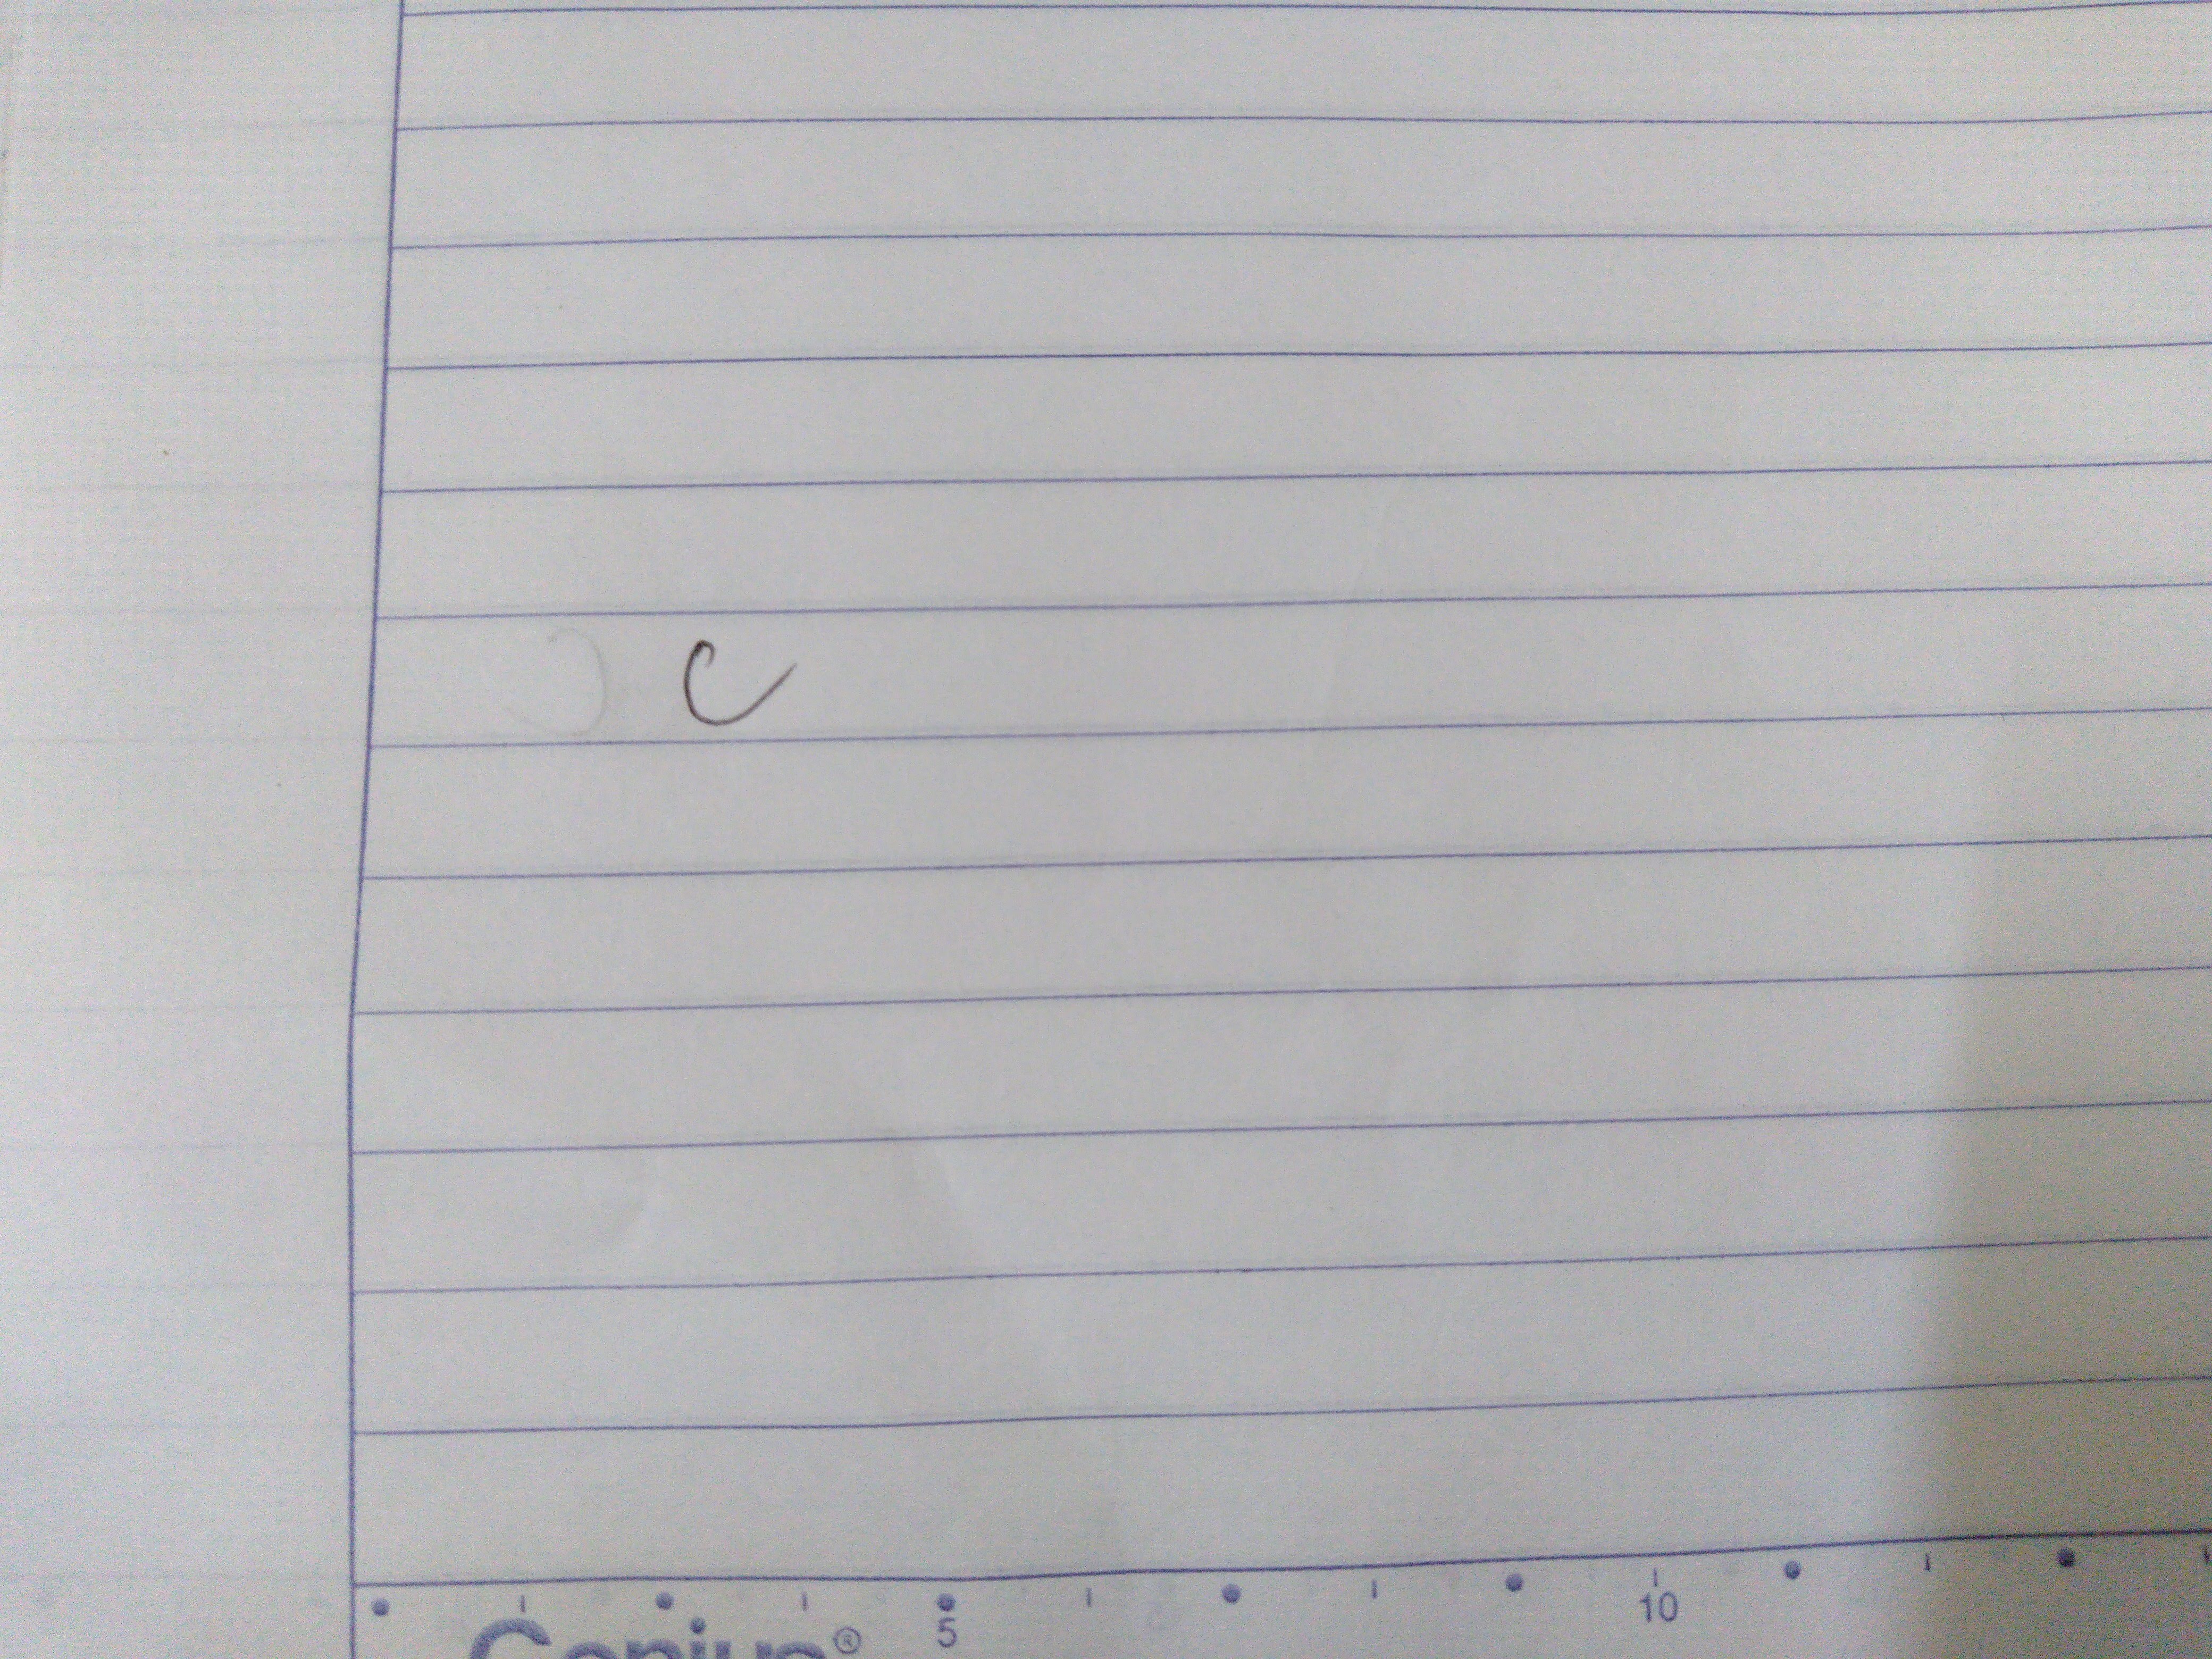 c
5
10
Genius®